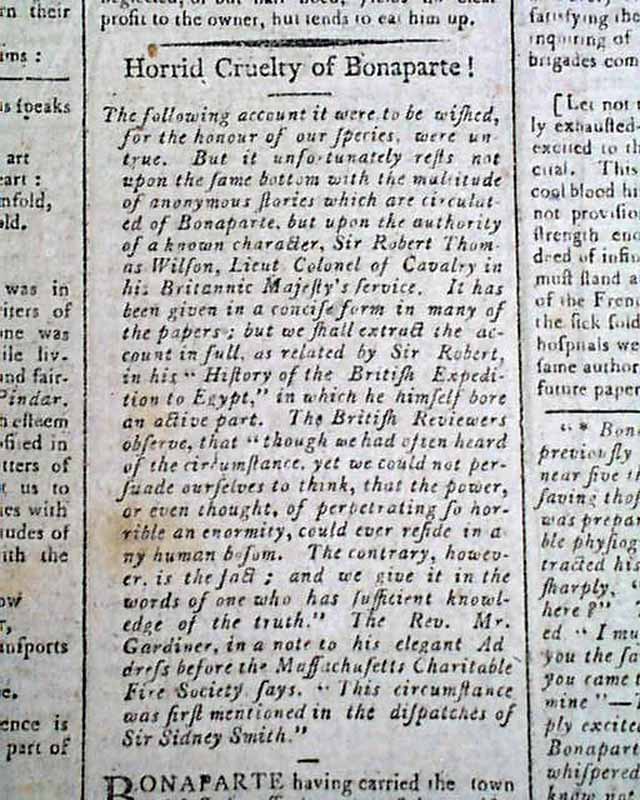 rn their
ims :
us ſpeaks
art
eart :
nfold,
old.
was in
riters of
one was
ile liv-
and fair-
Pindar.
n eſteem
ofited in
tters of
t us to
es with
tudes of
ith the
ow
r,
anſports
e.
ence is
part of
profit to the owner, but tends to eat him up.
Horrid Cruelty of Bonaparte !
The following account it were to be wiſhed,
for the honour of our ſpecies, were un-
true. But it unfortunately reſts not
upon the ſame bottom with the multitude
of anonymous ſtories which are circulat-
ed of Bonaparte, but upon the authority
of a known character, Sir Robert Thom-
as Wilſon, Lieut Colonel of Cavalry in
his Britannic Majeſty's ſervice. It has
been given in a conciſe form in many of
the papers ; but we ſhall extract the ac-
count in full, as related by Sir Robert,
in his " Hiſtory of the Britiſh Expedi-
tion to Egypt," in which he himſelf bore
an active part. The Britiſh Reviewers
obſerve, that "though we had often heard
of the circumſtance, yet we could not per-
ſuade ourſelves to think, that the power,
or even thought, of perpetrating ſo hor-
rible an enormity, could ever reſide in a-
ny human boſom. The contrary, howev-
er, is the fact ; and we give it in the
words of one who has ſufficient knowl-
edge of the truth." The Rev. Mr.
Gardiner, in a note to his elegant Ad
dreſs before the Maſſachuſetts Charitable
Fire Society ſays. " This circumſtance
was firſt mentioned in the diſpatches of
Sir Sidney Smith."
BONAPARTE having carried the town
ſatisfying the
inquiring of
brigades com
[Let not
ly exhauſted-
excited to th
cual. This
cool blood hi
not proviſio
ſtrength eno
deed of infin
muſt ſtand a
of the Fren
the ſick ſold
hoſpitals we
ſame author
future paper
" * Bon
previouſly
near five th
ſaving thoſ
was prepar
ble phyſiog
tracted his
ſharply, "
here ?"
ed " I mu
you the ſa
you came t
mine "—
ply excite
Bonapart
whiſpered
know not